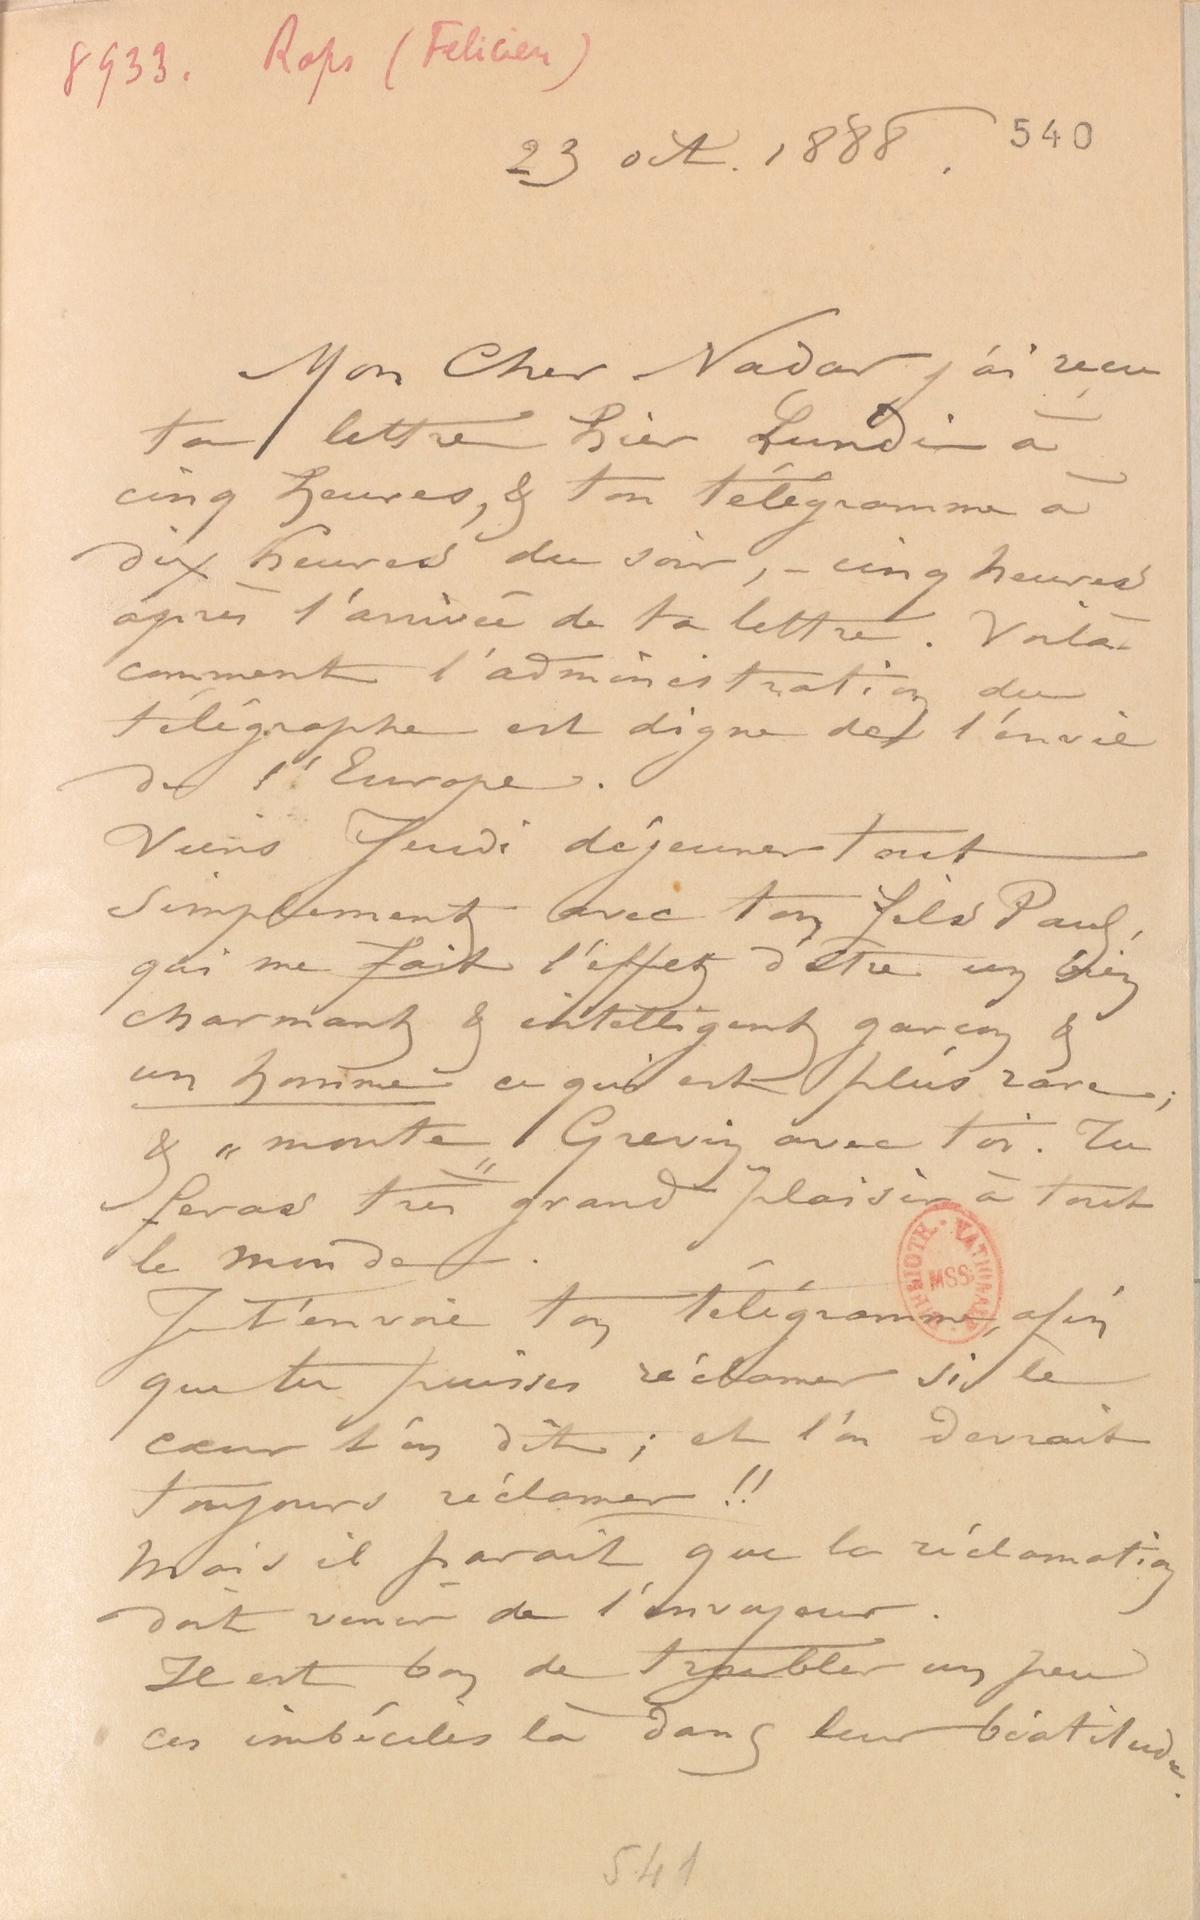 8933. Rops (Félicien)
540
23 oct. 1888.
Mon Cher Nadar j'ai reçu
ta lettre hier Lundi à
cinq heures, & ton télégramme à
dix heures du soir, – cinq heures
après l'arrivée de ta lettre. Voilà
comment l'administration du
télégraphe est digne de l'envie
de l'Europe.
Viens Jeudi déjeuner tout
simplement avec ton fils Paul,
qui me fait l'effet d'être un bien
charmant & intelligent garçon &
un homme ce qui est plus rare;
& "monte" Grevin avec toi. Tu
feras très grand plaisir à tout
le monde.
Je t'envoie ton télégramme, afin
que tu puisses réclamer si le
cœur t'en dit; et l'on devrait
toujours réclamer!!
Mais il parait que la réclamation
doit venir de l'envoyeur.
Il est bon de troubler un peu
ces imbéciles là dans leur béatitude.
BIBLIOTH. NATIONALE
MSS
541